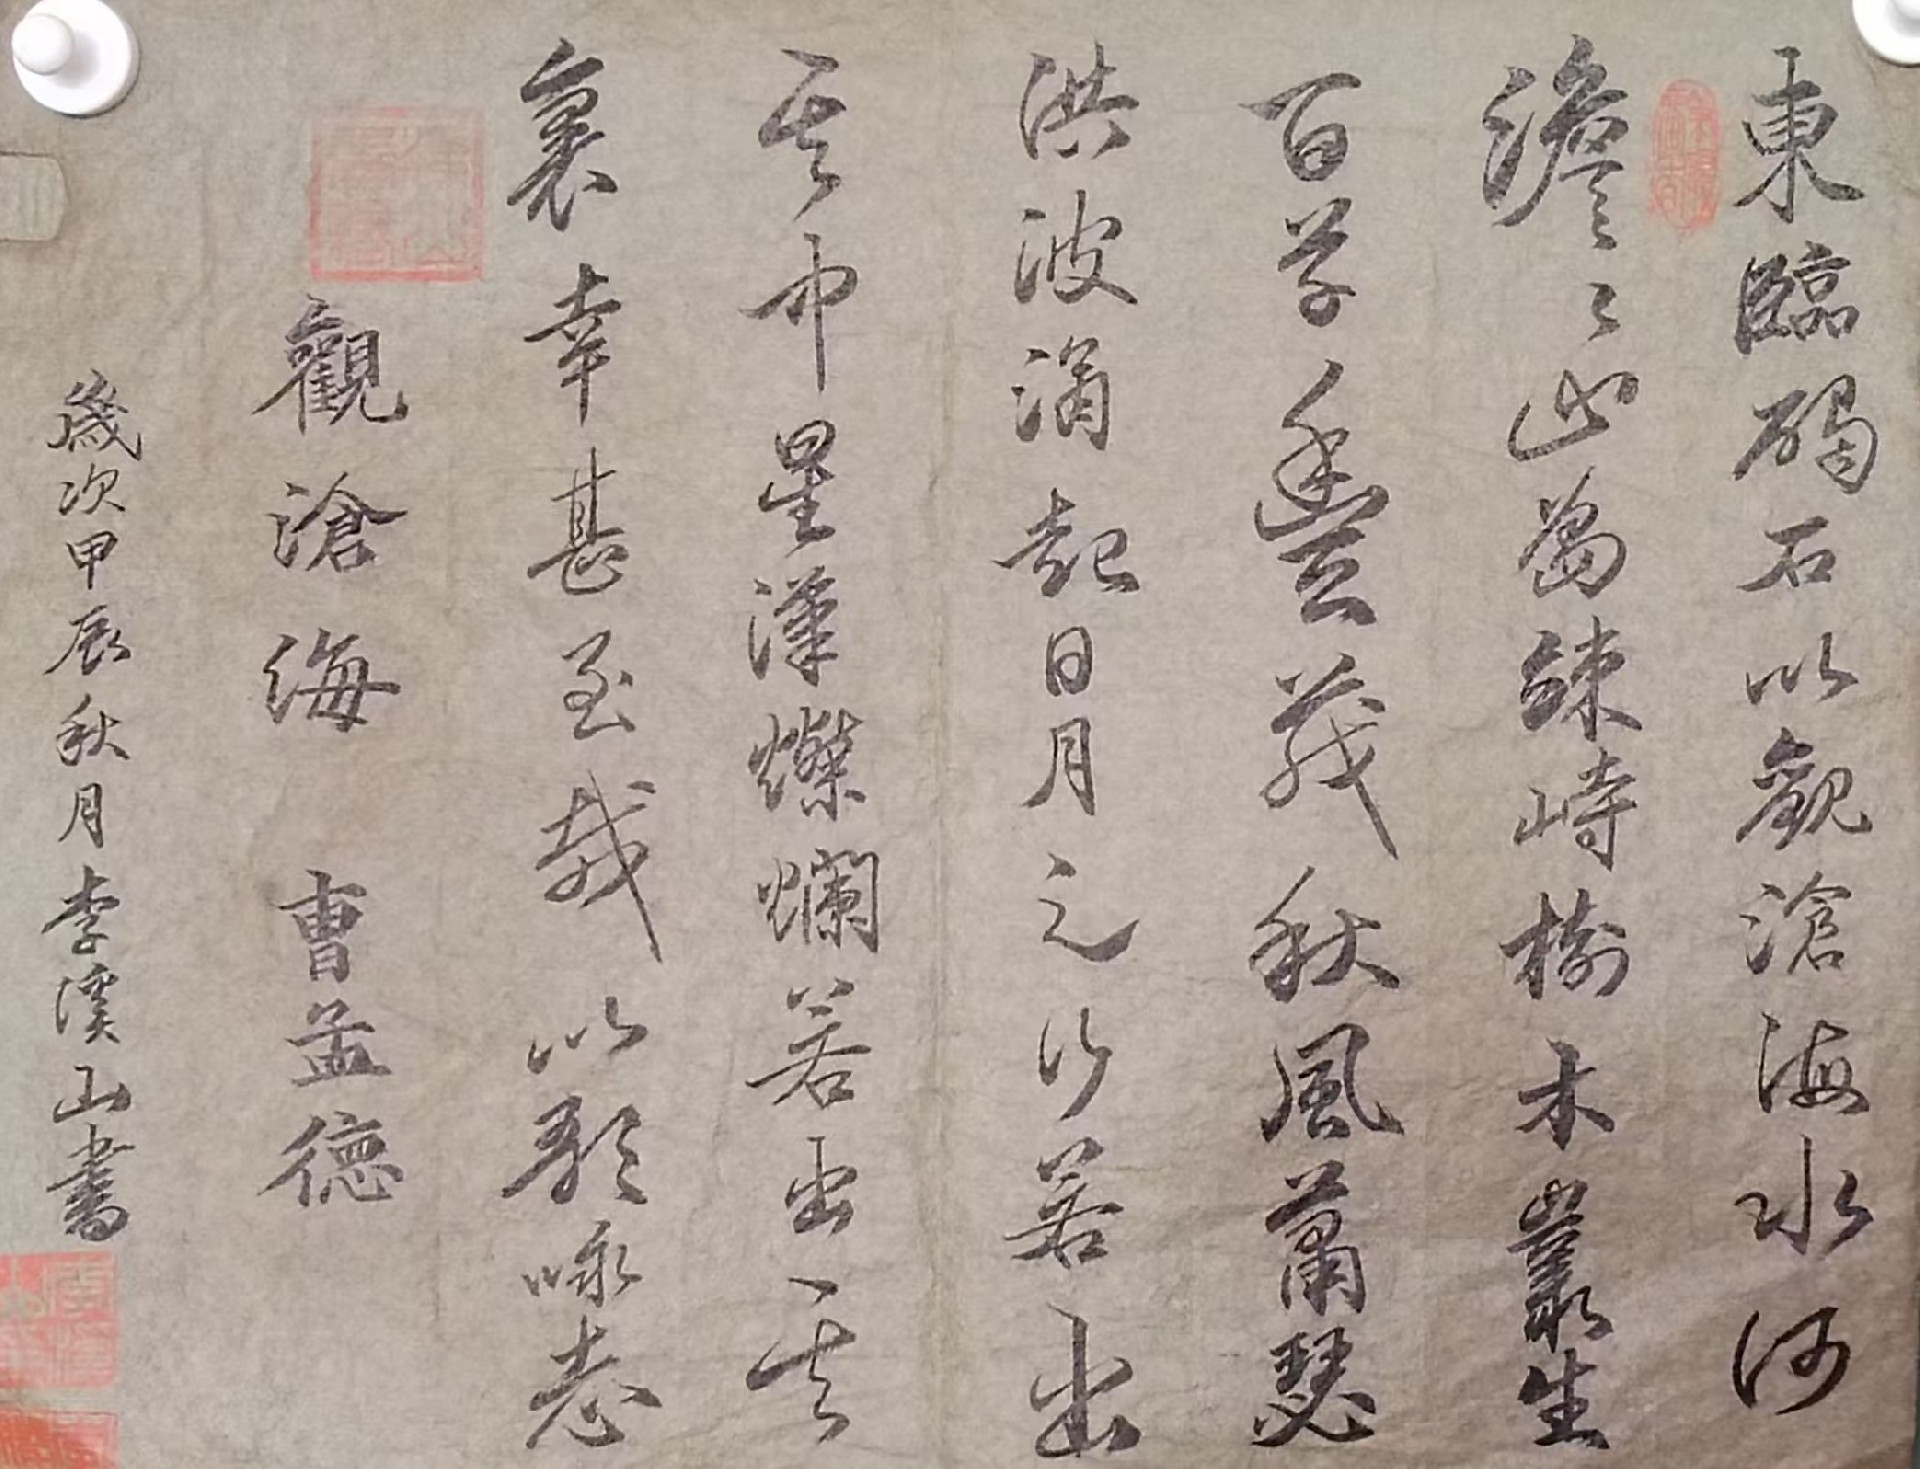 東臨碣石以觀滄海水何
澹〻山島竦峙樹木叢生
百草豐茂秋風蕭瑟
洪波涌起日月之行若出
其中星漢燦爛若出其
裏幸甚至哉以歌詠志
觀滄海 曹孟德
歲次甲辰秋月李溪山書